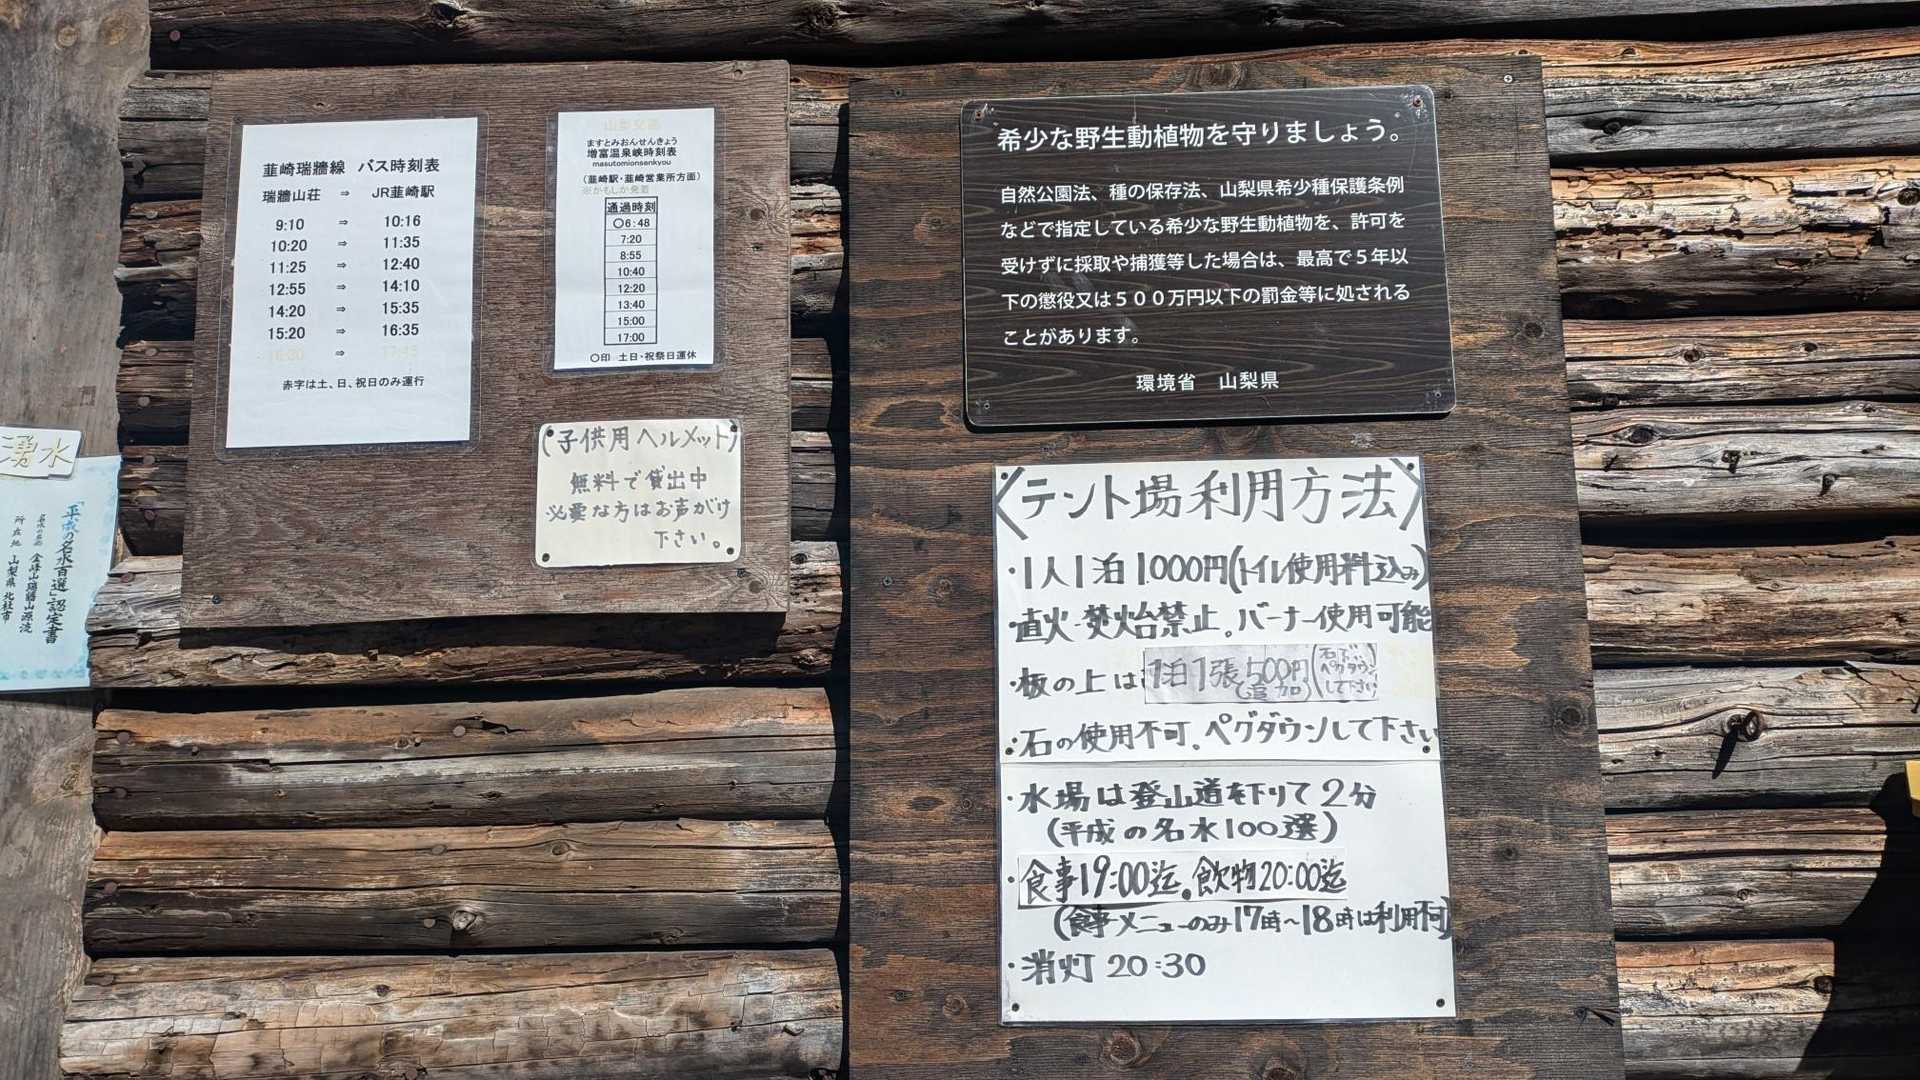 韮崎瑞牆線 バス時刻表
瑞牆山荘 ⇒ JR韮崎駅
9:10 ⇒ 10:16
10:20 ⇒ 11:35
11:25 ⇒ 12:40
12:55 ⇒ 14:10
14:20 ⇒ 15:35
15:20 ⇒ 16:35
16:30 ⇒ 17:45
赤字は土、日、祝日のみ運行
山梨交通
ますとみおんせんきょう
増富温泉峡時刻表
masutomionsenkyou
(韮崎駅・韮崎営業所方面)
※かもしか発着
通過時刻
〇6:48
7:20
8:55
10:40
12:20
13:40
15:00
17:00
〇印 土日・祝祭日運休
(子供用ヘルメット)
無料で貸出中
必要な方はお声がけ
下さい。
湧水
「平成の名水百選」認定書
名水の名称 金峰山瑞牆山源流
所在地 山梨県北杜市
希少な野生動植物を守りましょう。
自然公園法、種の保存法、山梨県希少種保護条例
などで指定している希少な野生動植物を、許可を
受けずに採取や捕獲等した場合は、最高で5年以
下の懲役又は500万円以下の罰金等に処される
ことがあります。
環境省 山梨県
〈テント場利用方法〉
・1人1泊1.000円(トイレ使用料込み)
・直火・焚火台禁止。バーナー使用可能
・板の上は1泊1張500円(追加)(石不可ペグダウンして下さい)
・石の使用不可。ペグダウンして下さい
・水場は登山道を下りて2分
(平成の名水100選)
・食事19:00迄。飲物20:00迄
(食事メニューのみ17時~18時は利用不可)
・消灯 20:30